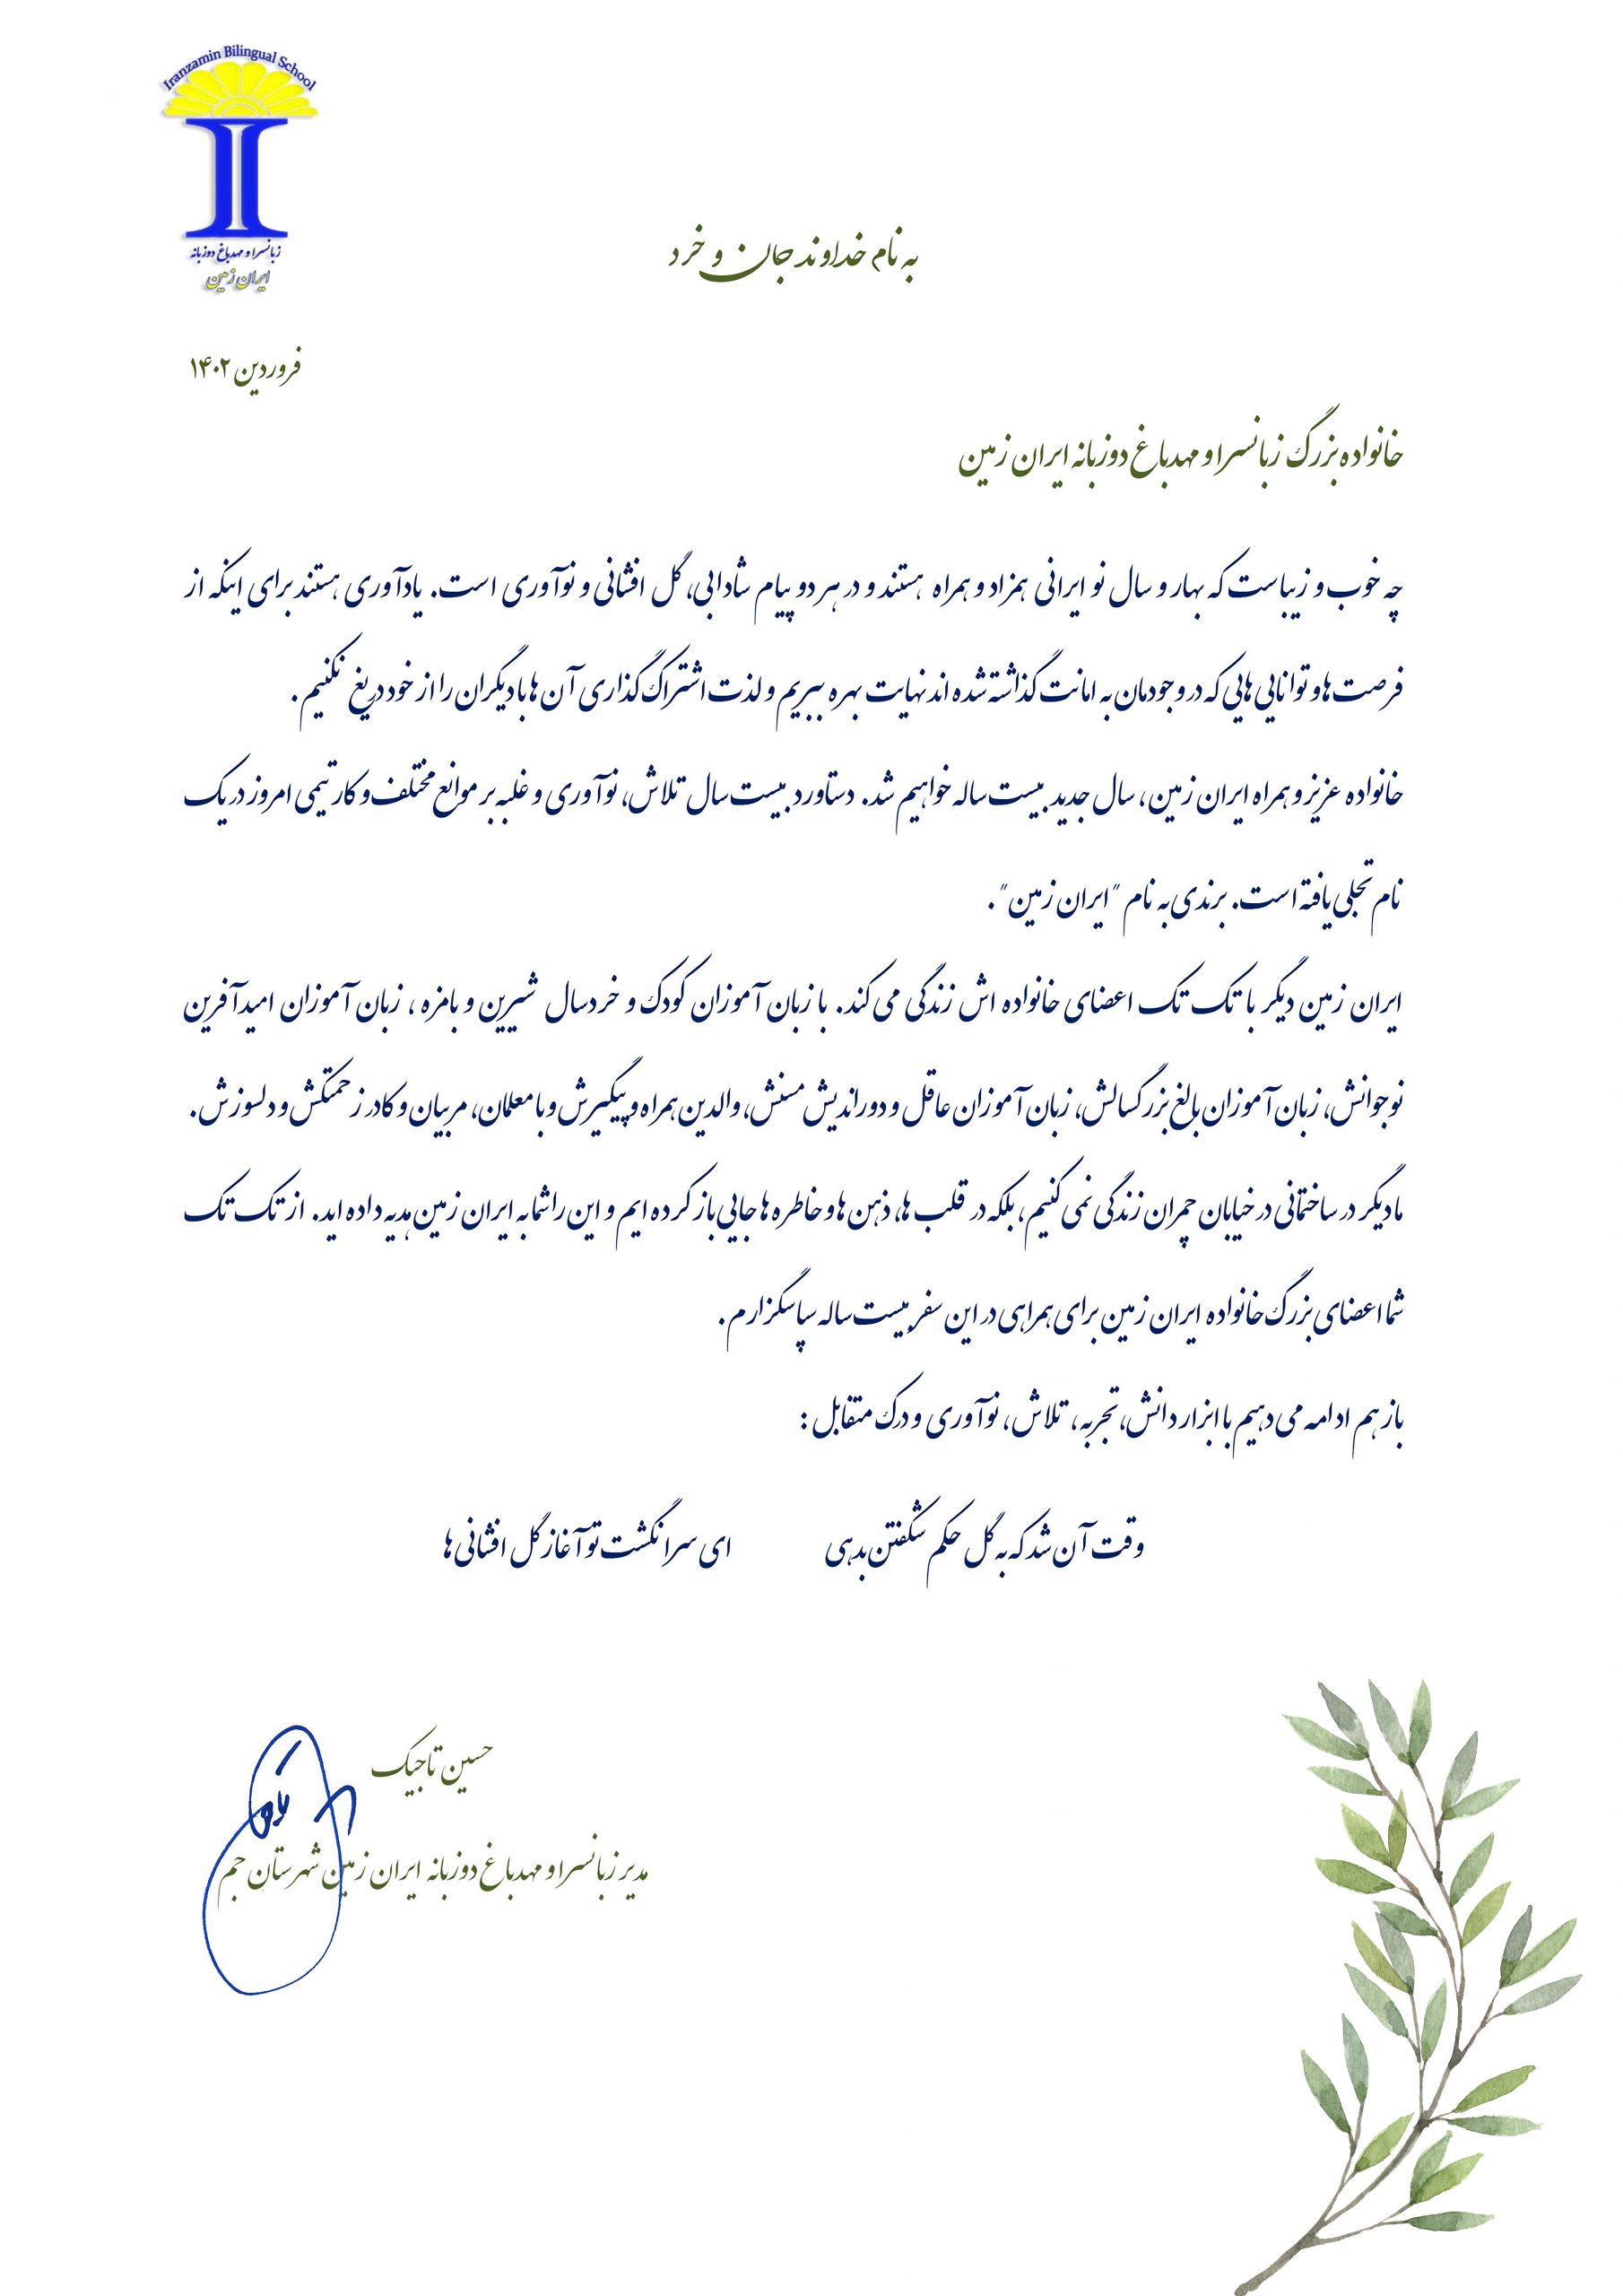 Iranzamin Bilingual School
زبانسرا و مهدباغ دوزبانه
ایران زمین
به نام خداوند جان و خرد
فروردین ۱۴۰۲
خانواده بزرگ زبانسرا و مهدباغ دوزبانه ایران زمین
چه خوب و زیباست که بهار و سال نو ایرانی همزاد و همراه هستند و در هر دو پیام شادابی، گل افشانی و نوآوری است. یادآوری هستند برای اینکه از
فرصت ها و توانایی هایی که در وجودمان به امانت گذاشته شده اند نهایت بهره ببریم و لذت اشتراک گذاری آن ها با دیگران را از خود دریغ نکنیم.
خانواده عزیز و همراه ایران زمین، سال جدید بیست ساله خواهیم شد. دستاورد بیست سال تلاش، نوآوری و غلبه بر موانع مختلف و کار تیمی امروز در یک
نام تجلی یافته است. برندی به نام "ایران زمین".
ایران زمین دیگر با تک تک اعضای خانواده اش زندگی می کند. با زبان آموزان کودک و خردسال شیرین و بامزه، زبان آموزان امیدآفرین
نوجوانش، زبان آموزان بالغ بزرگسالش، زبان آموزان عاقل و دوراندیش مسنش، والدین همراه و پیگیرش و با معلمان، مربیان و کادر زحمتکش و دلسوزش.
ما دیگر در ساختمانی در خیابان چمران زندگی نمی کنیم، بلکه در قلب ها، ذهن ها و خاطره ها جایی باز کرده ایم و این را شما به ایران زمین هدیه داده اید. از تک تک
شما اعضای بزرگ خانواده ایران زمین برای همراهی در این سفر بیست ساله سپاسگزارم.
باز هم ادامه می دهیم با ابزار دانش، تجربه، تلاش، نوآوری و درک متقابل:
وقت آن شد که به گل حکم شکفتن بدهی ای سرانگشت تو آغاز گل افشانی ها
حسین تاجیک
مدیر زبانسرا و مهدباغ دوزبانه ایران زمین شهرستان جم